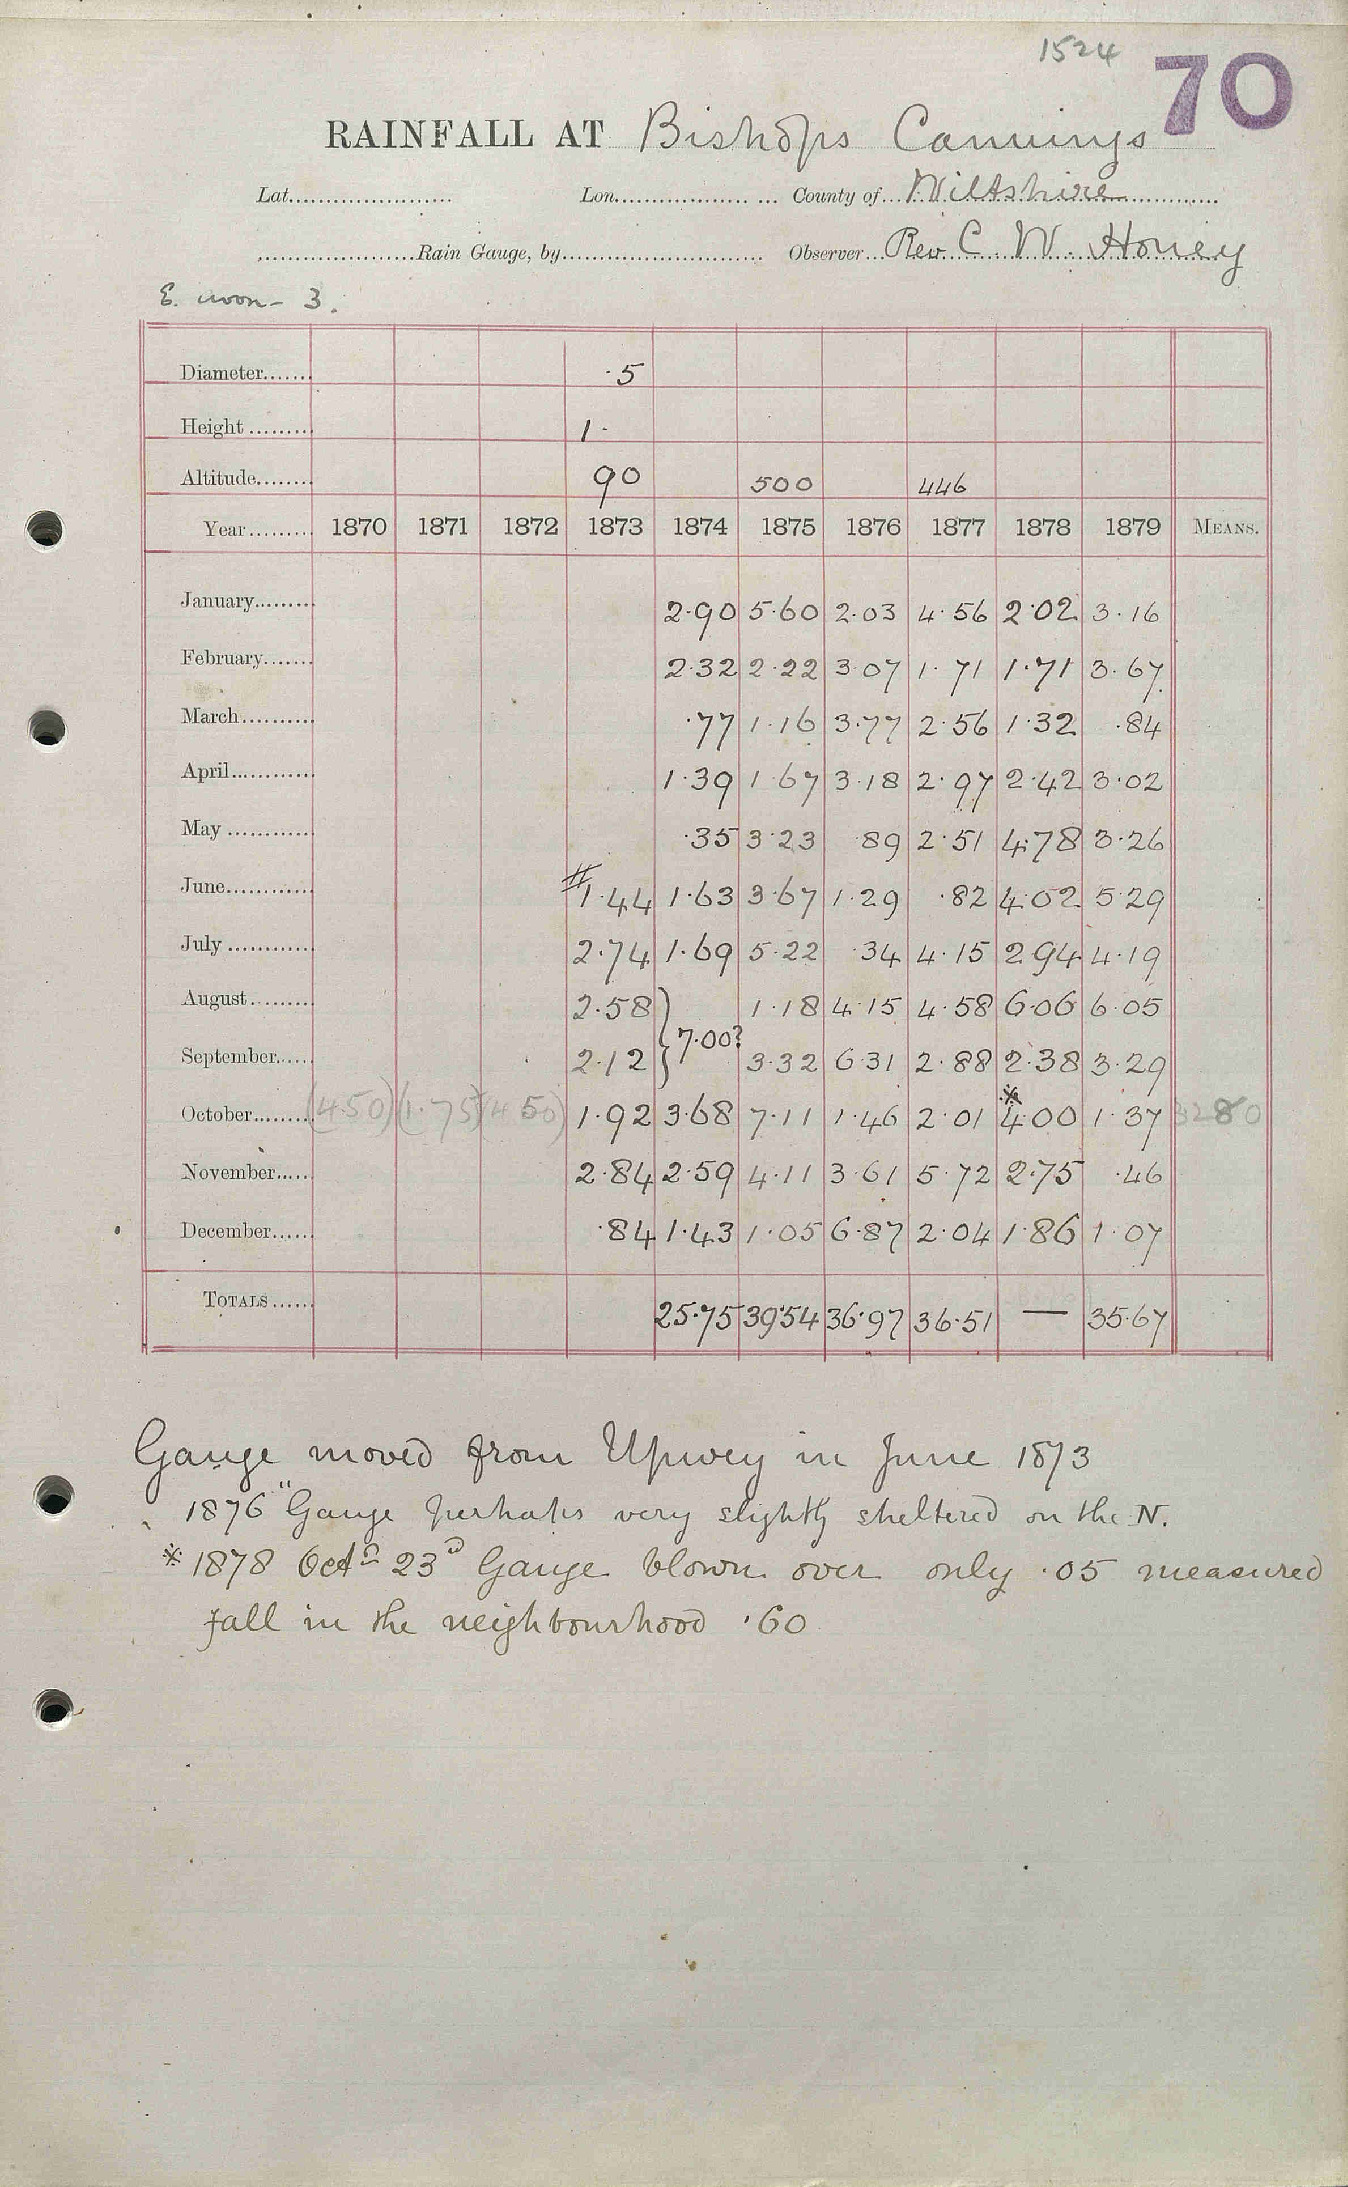 1524 70
RAINFALL AT Bishops Cannings
Lat. Lon. County of Wiltshire
Rain Gauge, by Observer Rev C. W. Honey
E. noon - 3.
Diameter ·5
Height 1·
Altitude 90 500 446
Year 1870 1871 1872 1873 1874 1875 1876 1877 1878 1879 MEANS.
January 2·90 5·60 2·03 4·56 2·02 3·16
February 2·32 2·22 3·07 1·71 1·71 3·67
March ·77 1·16 3·77 2·56 1·32 ·84
April 1·39 1·67 3·18 2·97 2·42 3·02
May ·35 3·23 ·89 2·51 4·78 3·26
June # 1·44 1·63 3·67 1·29 ·82 4·02 5·29
July 2·74 1·69 5·22 ·34 4·15 2·94 4·19
August 2·58 } 1·18 4·15 4·58 6·06 6·05
7·00?
September 2·12 3·32 6·31 2·88 2·38 3·29
October (4·50) (1·75) (4·50) 1·92 3·68 7·11 1·46 2·01 * 4·00 1·37 3280
November 2·84 2·59 4·11 3·61 5·72 2·75 ·46
December ·84 1·43 1·05 6·87 2·04 1·86 1·07
TOTALS 25·75 39·54 36·97 36·51 — 35·67
Gauge moved from Upwey in June 1873
1876 "Gauge perhaps very slightly sheltered on the N.
* 1878 Octr 23d Gauge blown over only ·05 measured
fall in the neighbourhood ·60